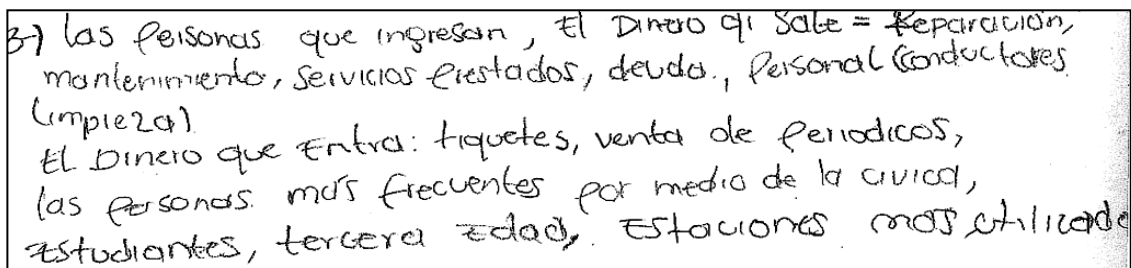 3-) las personas que ingresan, El Dinero qi Sale = Reparación,
mantenimiento, servicios Prestados, deuda., Personal (Conductores
Limpieza)
El Dinero que Entra: tiquetes, venta de Periodicos,
las personas mas frecuentes por medio de la civica,
Estudiantes, tercera Edad, Estaciones mas utilizada